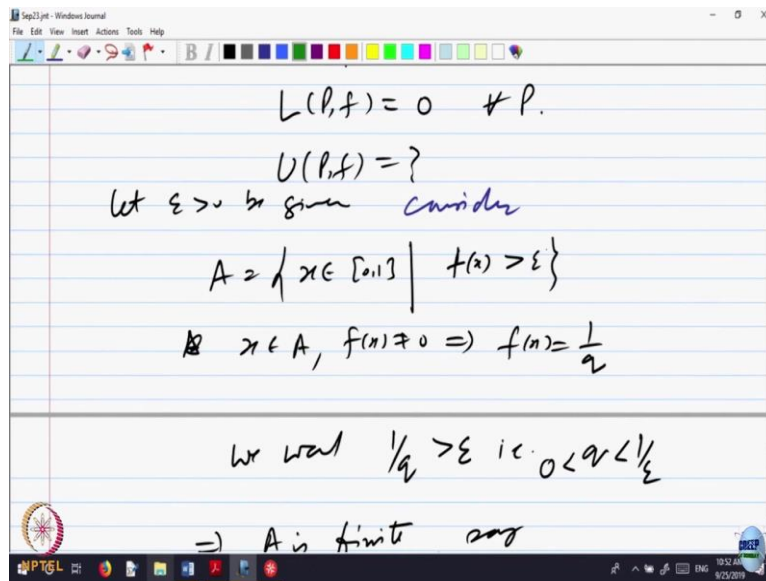 Sep23.jnt - Windows Journal
File Edit View Insert Actions Tools Help
B I
L(P,f) = 0 ∀ P.
U(P,f) = ?
Let ε > 0 be given consider
A = { x ∈ [0,1] | f(x) > ε }
x ∈ A, f(x) ≠ 0 ⇒ f(x) = 1/q
We want 1/q > ε i.e. 0 < q < 1/ε
⇒ A is finite say
NPTEL
ENG
10:52 AM
9/25/2019